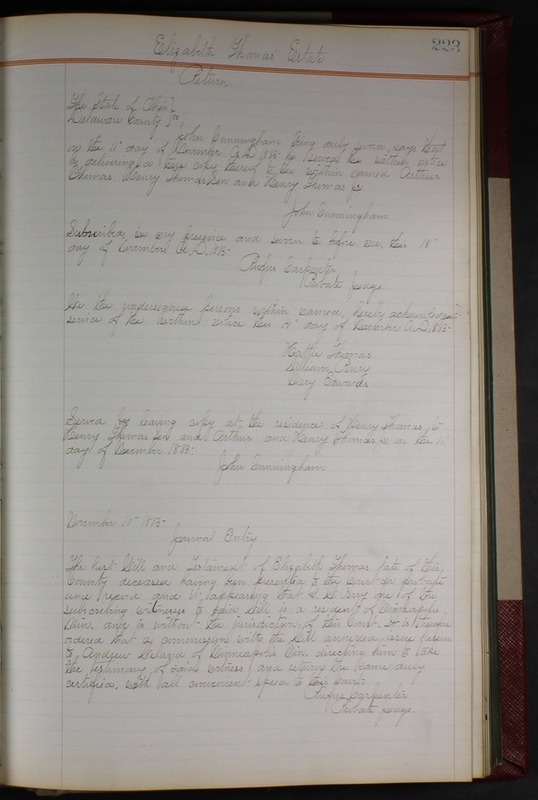 223
Elizabeth Thomas Estate
Return
The State of Ohio }
Delaware County } ss
John Cunningham being duly sworn, says that
on the 11" day of November A.D. 1885 he served the within notice
by delivering a true copy thereof to the within named Arthur
Thomas, Henry Thomas Sen and Henry Thomas Jr
John Cunningham
Subscribed in my presence and sworn to before me, this 18"
day of November A.D. 1885-
Rufus Carpenter
Probate Judge
We the undersigned persons within named, hereby acknowledge
service of the within notice this day of November A.D. 1885-
Hattie Thomas
William Perry
Mary Edwards
Service by leaving copy at the residence of Henry Thomas
Henry Thomas Sen and Arthur and Henry Thomas Jr on the 11"
day of November 1885-
John Cunningham
November 10" 1885-
Journal Entry
The last Will and Testament of Elizabeth Thomas late of this
County deceased having been presented to the Court for probate
and record and it appearing that one of the
subscribing witnesses to said Will is a resident of Minneapolis
Min. and is without the jurisdiction of this Court. It is therefore
ordered that a commission with the Will annexed issue
to Andrew of Minneapolis Min. directing him to take
the testimony of said witness and return the same duly
certified, with all convenient speed to this Court.
Rufus Carpenter
Probate Judge.